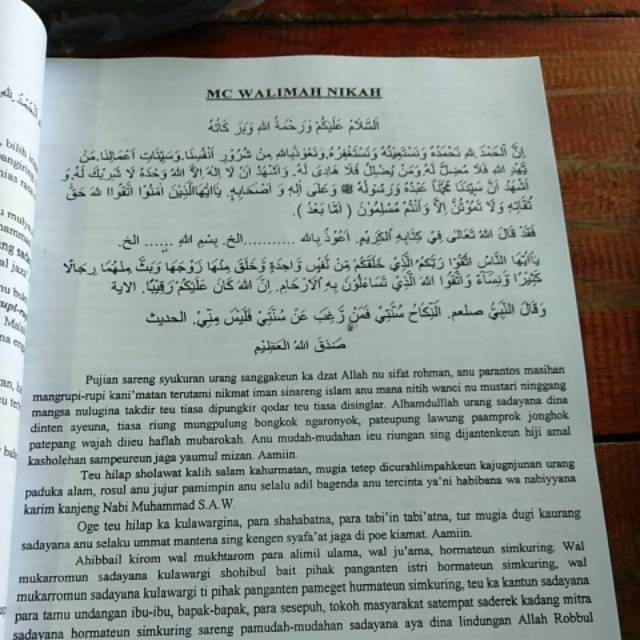 MC WALIMAH NIKAH
اَلسَّلَامُ عَلَيْكُمْ وَرَحْمَةُ اللهِ وَبَرَ كَاتُهُ
اِنَّ الْحَمْدَ لِلهِ نَحْمَدُهُ وَنَسْتَعِيْنُهُ وَنَسْتَغْفِرُهُ. وَنَعُوْذُبِاللهِ مِنْ شُرُوْرِ اَنْفُسِنَا. وَسَيِّئَاتِ اَعْمَالِنَا. مَنْ
يَهْدِ اللهُ فَلَا مُضِلَّ لَهُ. وَمَنْ يُضْلِلْ فَلَا هَادِىَ لَهُ. وَاَشْهَدُ اَنْ لَا اِلٰهَ اِلَّا اللهُ وَحْدَهُ لَا شَرِيْكَ لَهُ. وَ
اَشْهَدُ اَنَّ سَيِّدَنَا مُحَمَّدًا عَبْدُهُ وَرَسُوْلُهُ ﷺ وَعَلَى اٰلِهِ وَ اَصْحَابِهِ. يَااَيُّهَاالَّذِيْنَ اٰمَنُوْا اتَّقُوا اللهَ حَقَّ
تُقَاتِهِ وَ لَا تَمُوْتُنَّ اِلَّا وَاَنْتُمْ مُسْلِمُوْنَ ( اَمَّا بَعْدُ ).
فَقَدْ قَالَ اللهُ تَعَالَى فِيْ كِتَابِهِ الْكَرِيْمِ. اَعُوْذُ بِاللهِ ...........الخ. بِسْمِ اللهِ ...... الخ.
يَااَيُّهَا النَّاسُ اتَّقُوْا رَبَّكُمُ الَّذِيْ خَلَقَكُمْ مِنْ نَفْسٍ وَاحِدَةٍ وَخَلَقَ مِنْهَا زَوْجَهَا وَبَثَّ مِنْهُمَا رِجَالًا
كَثِيْرًا وَ نِسَاءً وَاتَّقُوا اللهَ الَّذِيْ تَسَاءَلُوْنَ بِهِ وَالْاَرْحَامِ. اِنَّ اللهَ كَانَ عَلَيْكُمْ رَقِيْبًا. الاية
وَقَالَ النَّبِيُّ صلعم. اَلنِّكَاحُ سُنَّتِيْ فَمَنْ رَغِبَ عَنْ سُنَّتِيْ فَلَيْسَ مِنِّيْ. الحديث
صَدَقَ اللهُ الْعَظِيْمِ
Pujian sareng syukuran urang sanggakeun ka dzat Allah nu sifat rohman, anu parantos masihan
mangrupi-rupi kani'matan terutami nikmat iman sinareng islam anu mana nitih wanci nu mustari ninggang
mangsa nulugina takdir teu tiasa dipungkir qodar teu tiasa disinglar. Alhamdulllah urang sadayana dina
dinten ayeuna, tiasa riung mungpulung bongkok ngaronyok, pateupung lawung paamprok jonghok
patepang wajah diieu haflah mubarokah. Anu mudah-mudahan ieu riungan sing dijantenkeun hiji amal
kasholehan sampeureun jaga yaumul mizan. Aamiin.
Teu hilap sholawat kalih salam kahurmatan, mugia tetep dicurahlimpahkeun kajugnjunan urang
paduka alam, rosul anu jujur pamimpin anu selalu adil bagenda anu tercinta ya'ni habibana wa nabiyyana
karim kanjeng Nabi Muhammad S.A.W.
Oge teu hilap ka kulawargina, para shahabatna, para tabi'in tabi'atna, tur mugia dugi kaurang
sadayana anu selaku ummat mantena sing kengen syafa'at jaga di poe kiamat. Aamiin.
Ahibbail kirom wal mukhtarom para alimil ulama, wal ju'ama, hormateun simkuring. Wal
mukarromun sadayana kulawargi shohibul bait pihak panganten istri hormateun simkuring, wal
mukarromun sadayana kulawargi ti pihak panganten pameget hurmateun simkuring, teu ka kantun sadayana
para tamu undangan ibu-ibu, bapak-bapak, para sesepuh, tokoh masyarakat satempat saderek kadang mitra
sadayana hormateun simkuring sareng pamudah-mudahan sadayana aya dina lindungan Allah Robbul